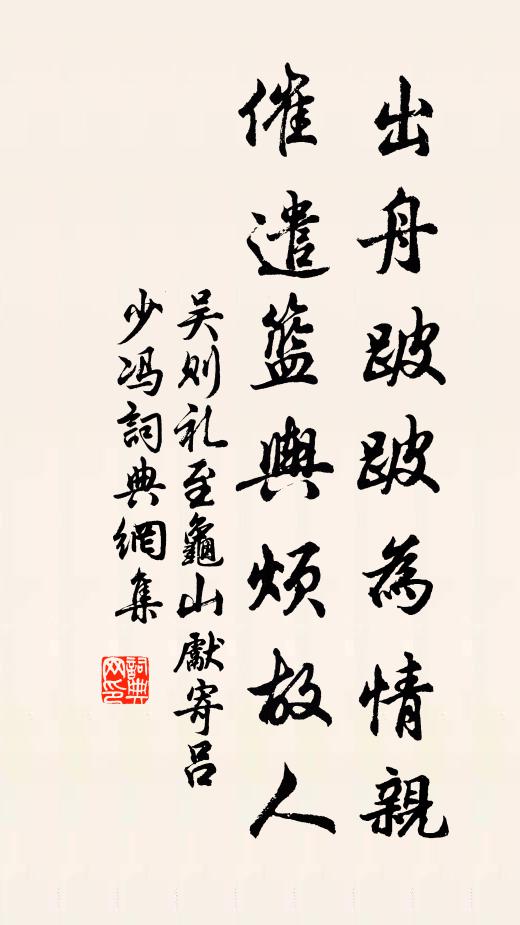 出舟跛跛為情親
催遣籃輿煩故人
吴则礼至龜山獻寄吕
少冯詞典網集
詞典网印